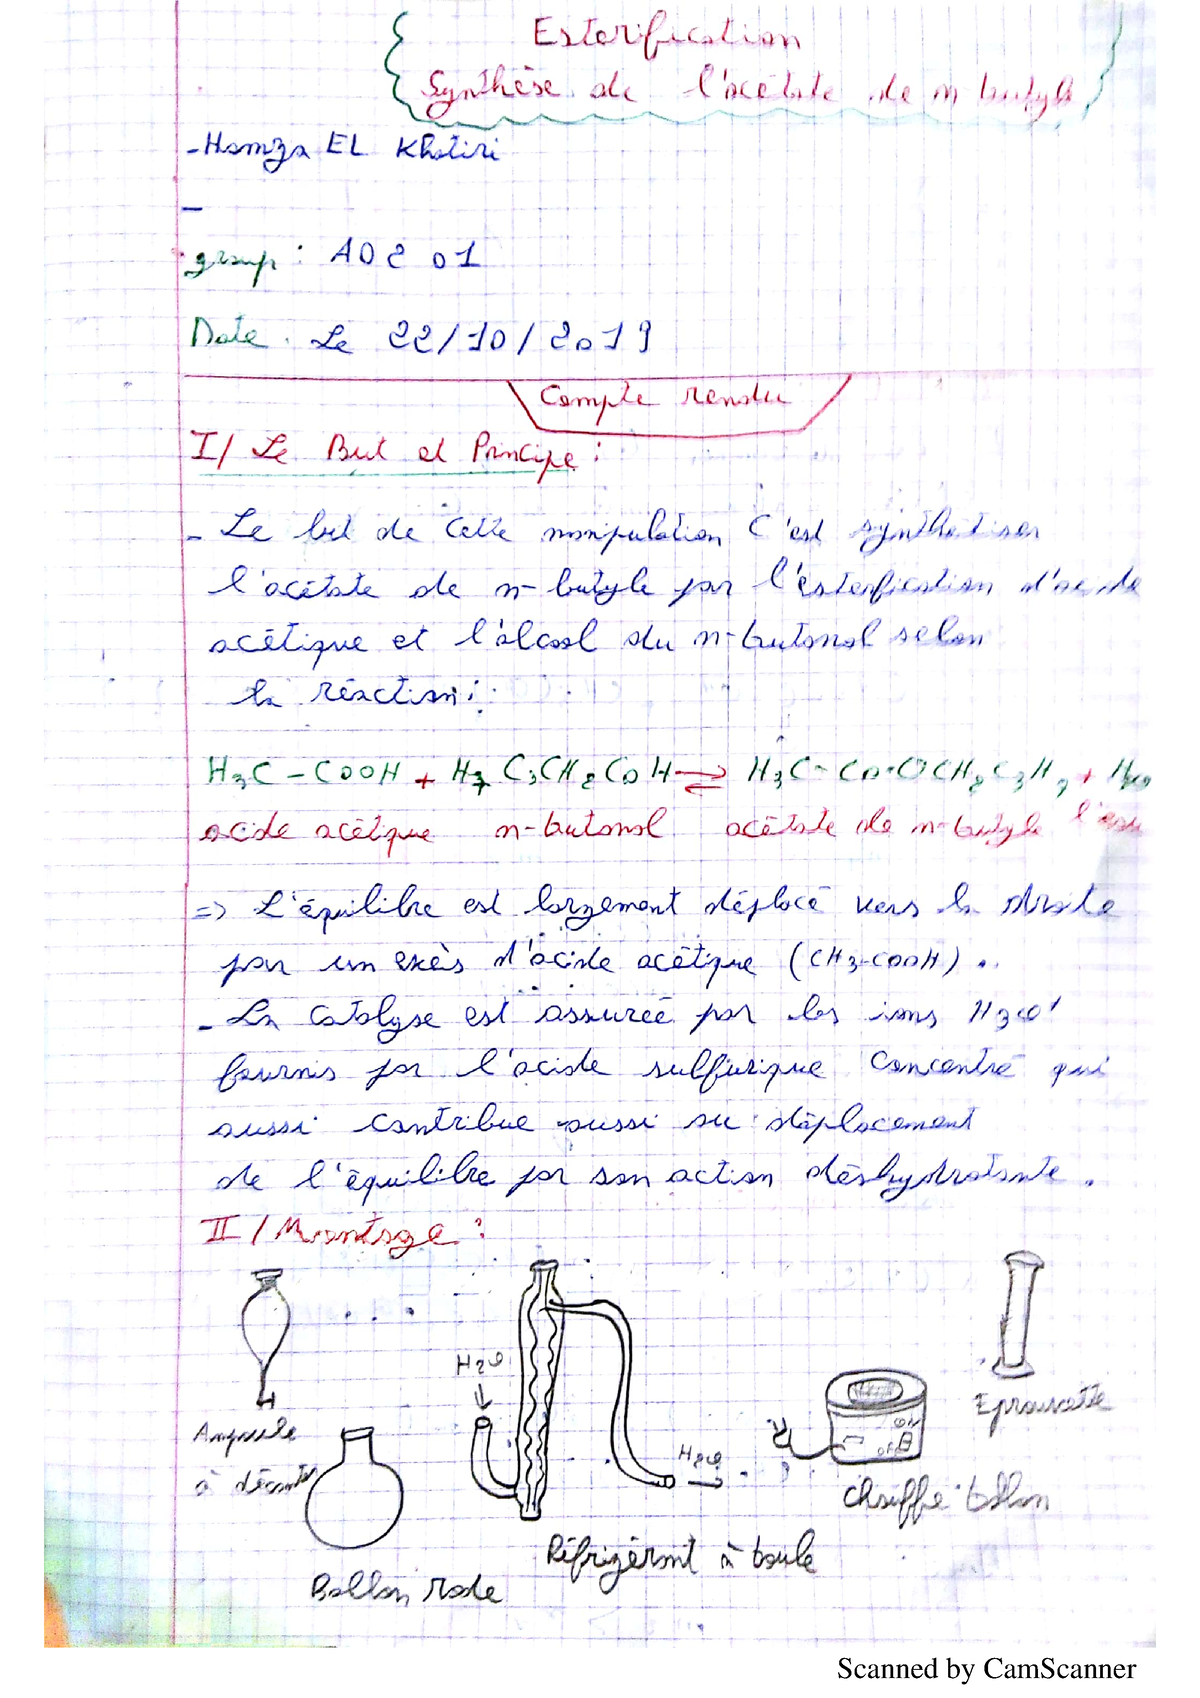 Esterification
Synthèse de l'acétate de n butyle
- Hamza EL Khatiri
-
group : A02 01
Date . Le 22/10/2019
Compte rendu
I/ Le But et Principe :
- Le but de cette manipulation C'est synthetiser
l'acétate de n-butyle par l'esterfication d'acide
acétique et l'alcool du n-butanol selon
la réaction :
H3C - COOH + H7 C3CH2CO H ⇌ H3C - CO-OCH2C3H7 + H2O
acide acétique n-butanol acétate de n-butyle l'eau
=> L'équilibre est largement déplacé vers la droite
par un exès d'acide acétique (CH3-COOH).
- La catalyse est assurée par les ions H3O+
fournis par l'acide sulfurique Concentré qui
aussi contribue aussi au déplacement
de l'équilibre par son action déshydratante.
II / Montage :
H2O
Ampoule
à décanter
H2O
ON
OFF
Eprouvette
Chauffe ballon
Réfrigérant à boule
Ballon rode
Scanned by CamScanner